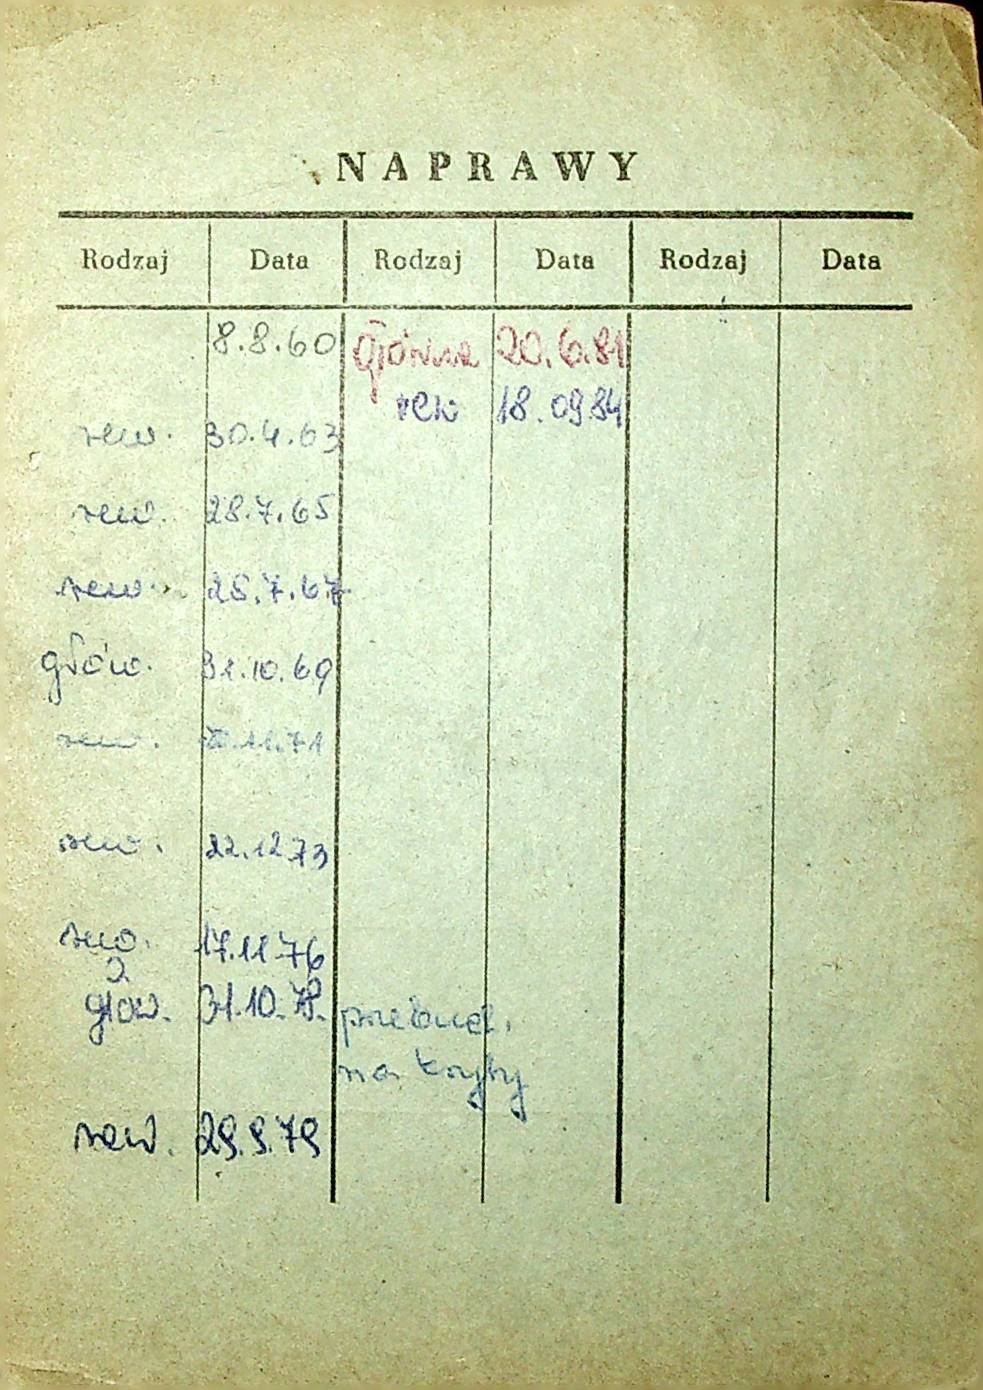 NAPRAWY
Rodzaj Data Rodzaj Data Rodzaj Data
8.8.60 główna 20.6.81
rew 18.0984
rew. 30.4.63
rew. 28.7.65
rew. 25.7.67
głów. 31.10.69
rew. 11.71
rew. 22.12 73
rew. 17.11 76
głów. 31.10.78. przebud.
na
rew. 29.9.79